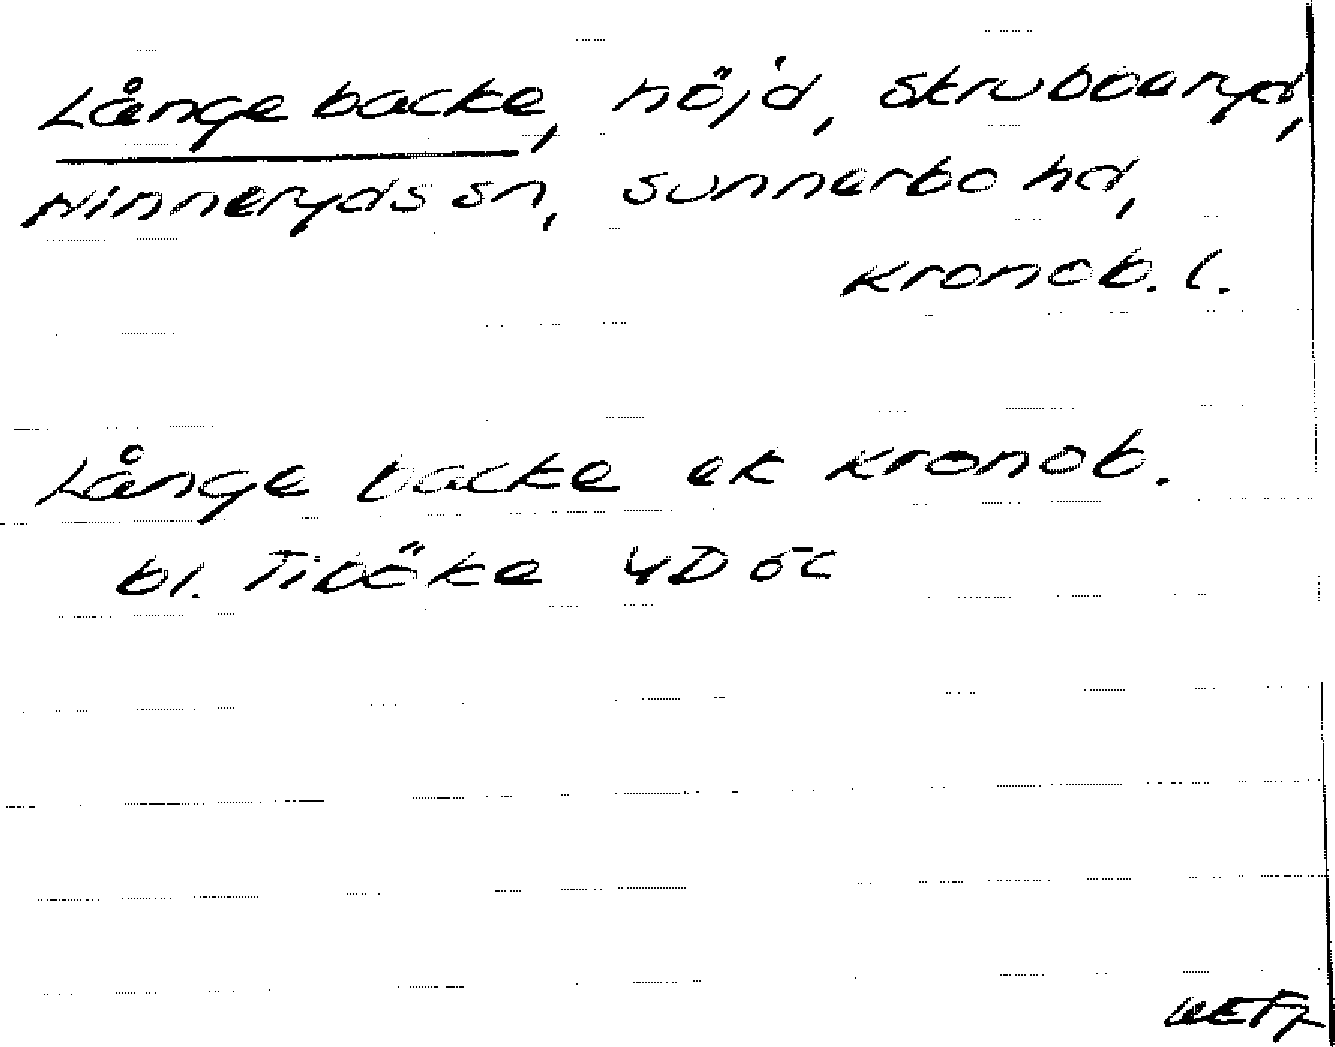 Långe backe, höjd, Skrubbaryd,
Hinneryds sn, Sunnerbo hd,
Kronob. l.
Långe backe ek Kronob.
bl. Tiböke 4D 5c